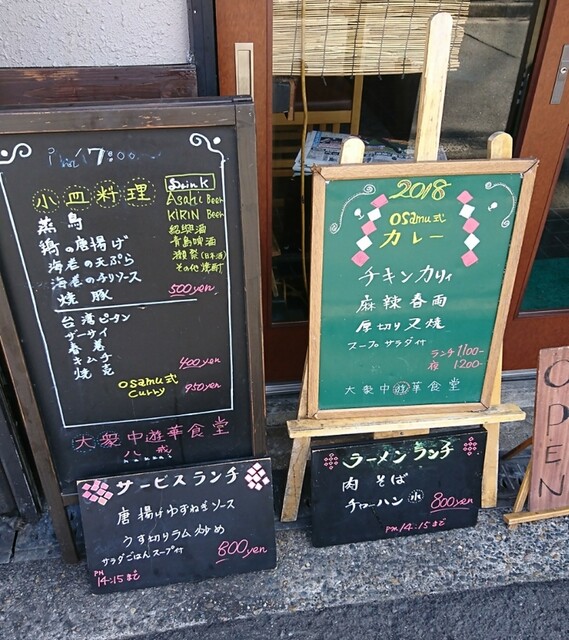 17:00
小皿料理
Drink
Asahi Beer
KIRIN Beer
紹興酒
青島啤酒
獺祭(日本酒)
その他焼酎
蒸鳥
鶏の唐揚げ
海老の天ぷら
海老のチリソース
焼豚
500yen
台湾ピータン
ザーサイ
春巻
キムチ
焼売
400yen
osamu式
Curry
950yen
大衆中遊華食堂
八戒
サービスランチ
唐揚げゆずねぎソース
うす切りラム炒め
サラダごはんスープ付
800yen
PM
14:15まで
2018
osamu式
カレー
チキンカリィ
麻辣春雨
厚切り叉焼
スープサラダ付
ランチ1100-
夜1200-
大衆中遊華食堂
ラーメンランチ
肉そば
チャーハン 小
800yen
PM14:15まで
OPEN